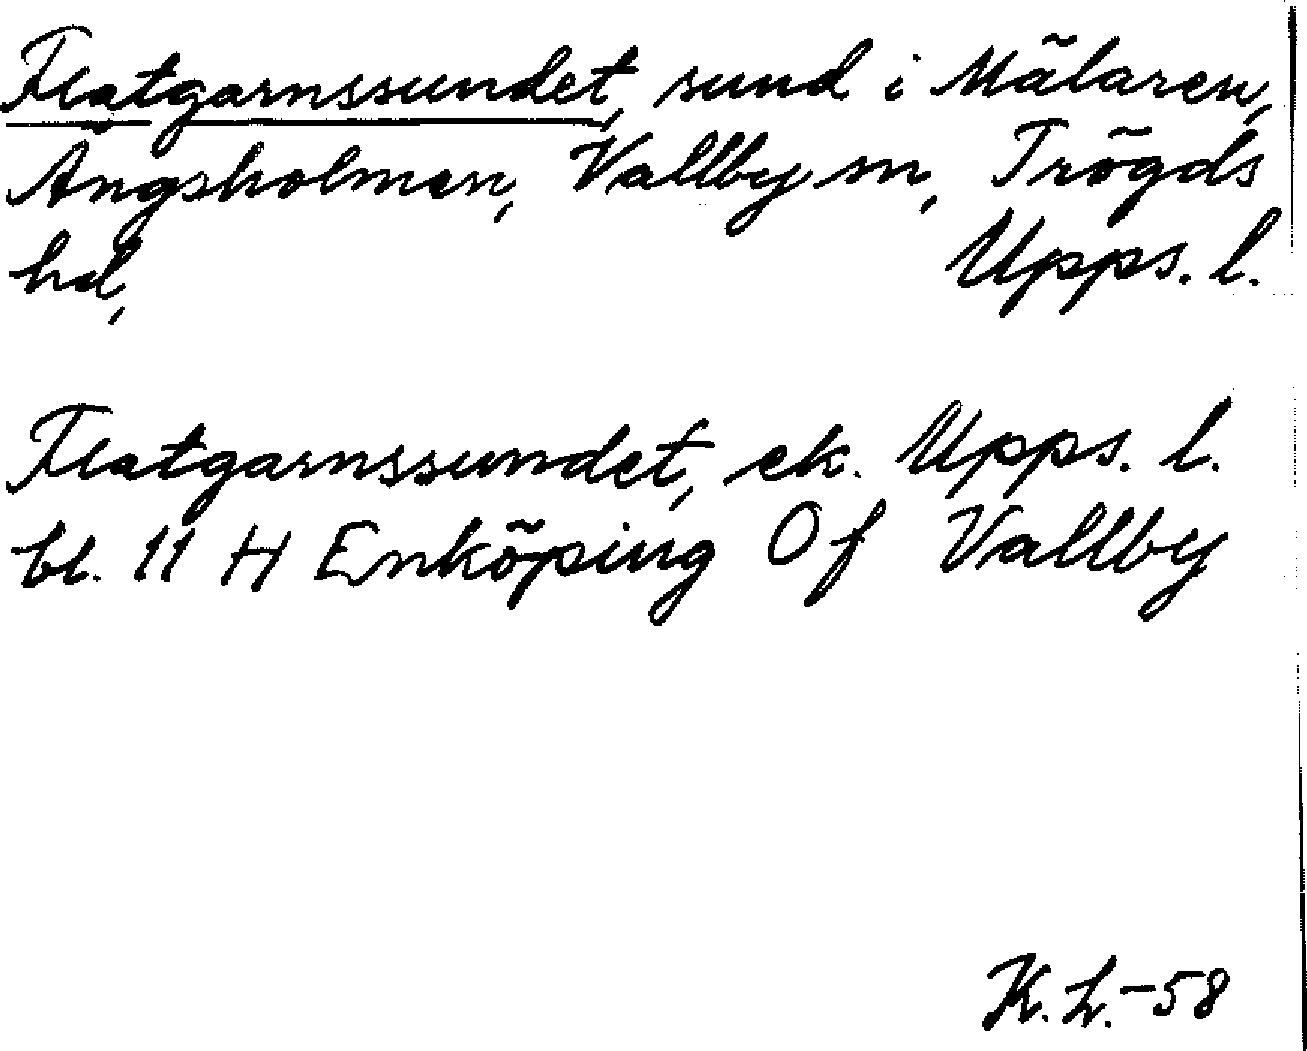 Flatgarnssundet, sund i Mälaren,
Ängsholmen, Vallby sn, Trögds
hd, Upps. l.
Flatgarnssundet, ek. Upps. l.
bl. 11 H Enköping 0 f Vallby
K. L.-58